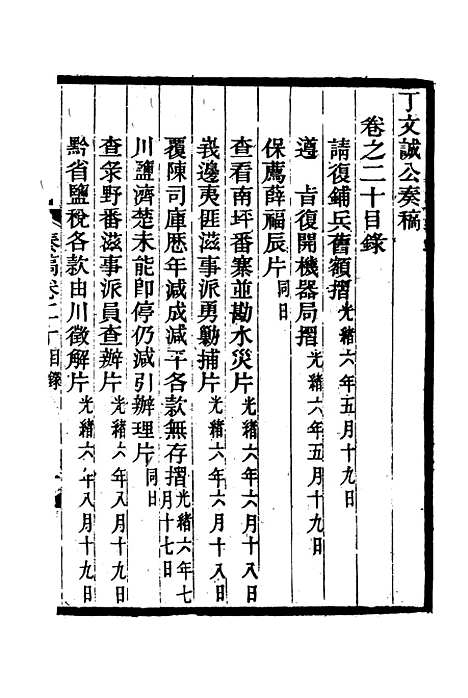 丁文誠公奏稿
卷之二十目錄
請復鋪兵舊額摺 光緒六年五月十九日
遵 旨復開機器局摺 光緒六年五月十九日
保薦薛福辰片 同日
查看南坪番寨並勘水災片 光緒六年六月十八日
峩邊夷匪滋事派勇勦捕片 光緒六年六月十八日
覆陳司庫歷年減成減平各款無存摺 光緒六年七月十七日
川鹽濟楚未能卽停仍減引辦理片 同日
查彔野番滋事派員查辦片 光緒六年八月十九日
黔省鹽稅各款由川徵解片 光緒六年八月十九日
奏稿卷二十目錄